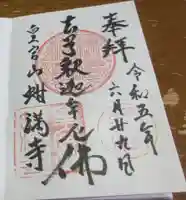 奉拝
令和五年
六月廿九日
古子釈迦牟尼佛
皇宮山 蚶満寺